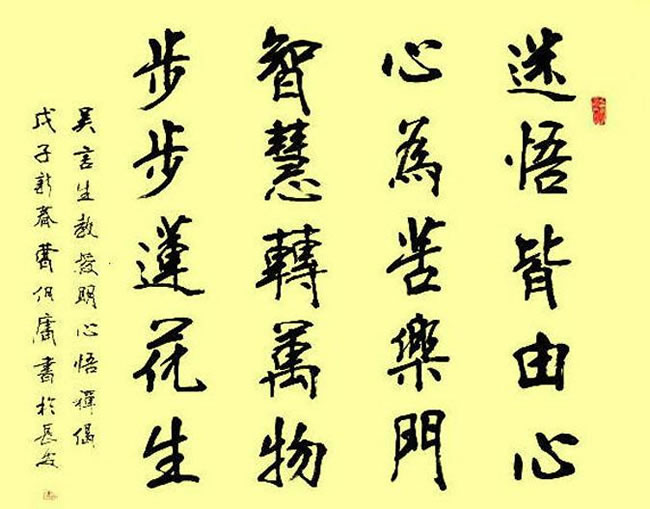 迷悟皆由心
心為苦樂門
智慧轉萬物
步步蓮花生
吴言生教授明心悟禪偈
戊子新春曹伯庸書於長安